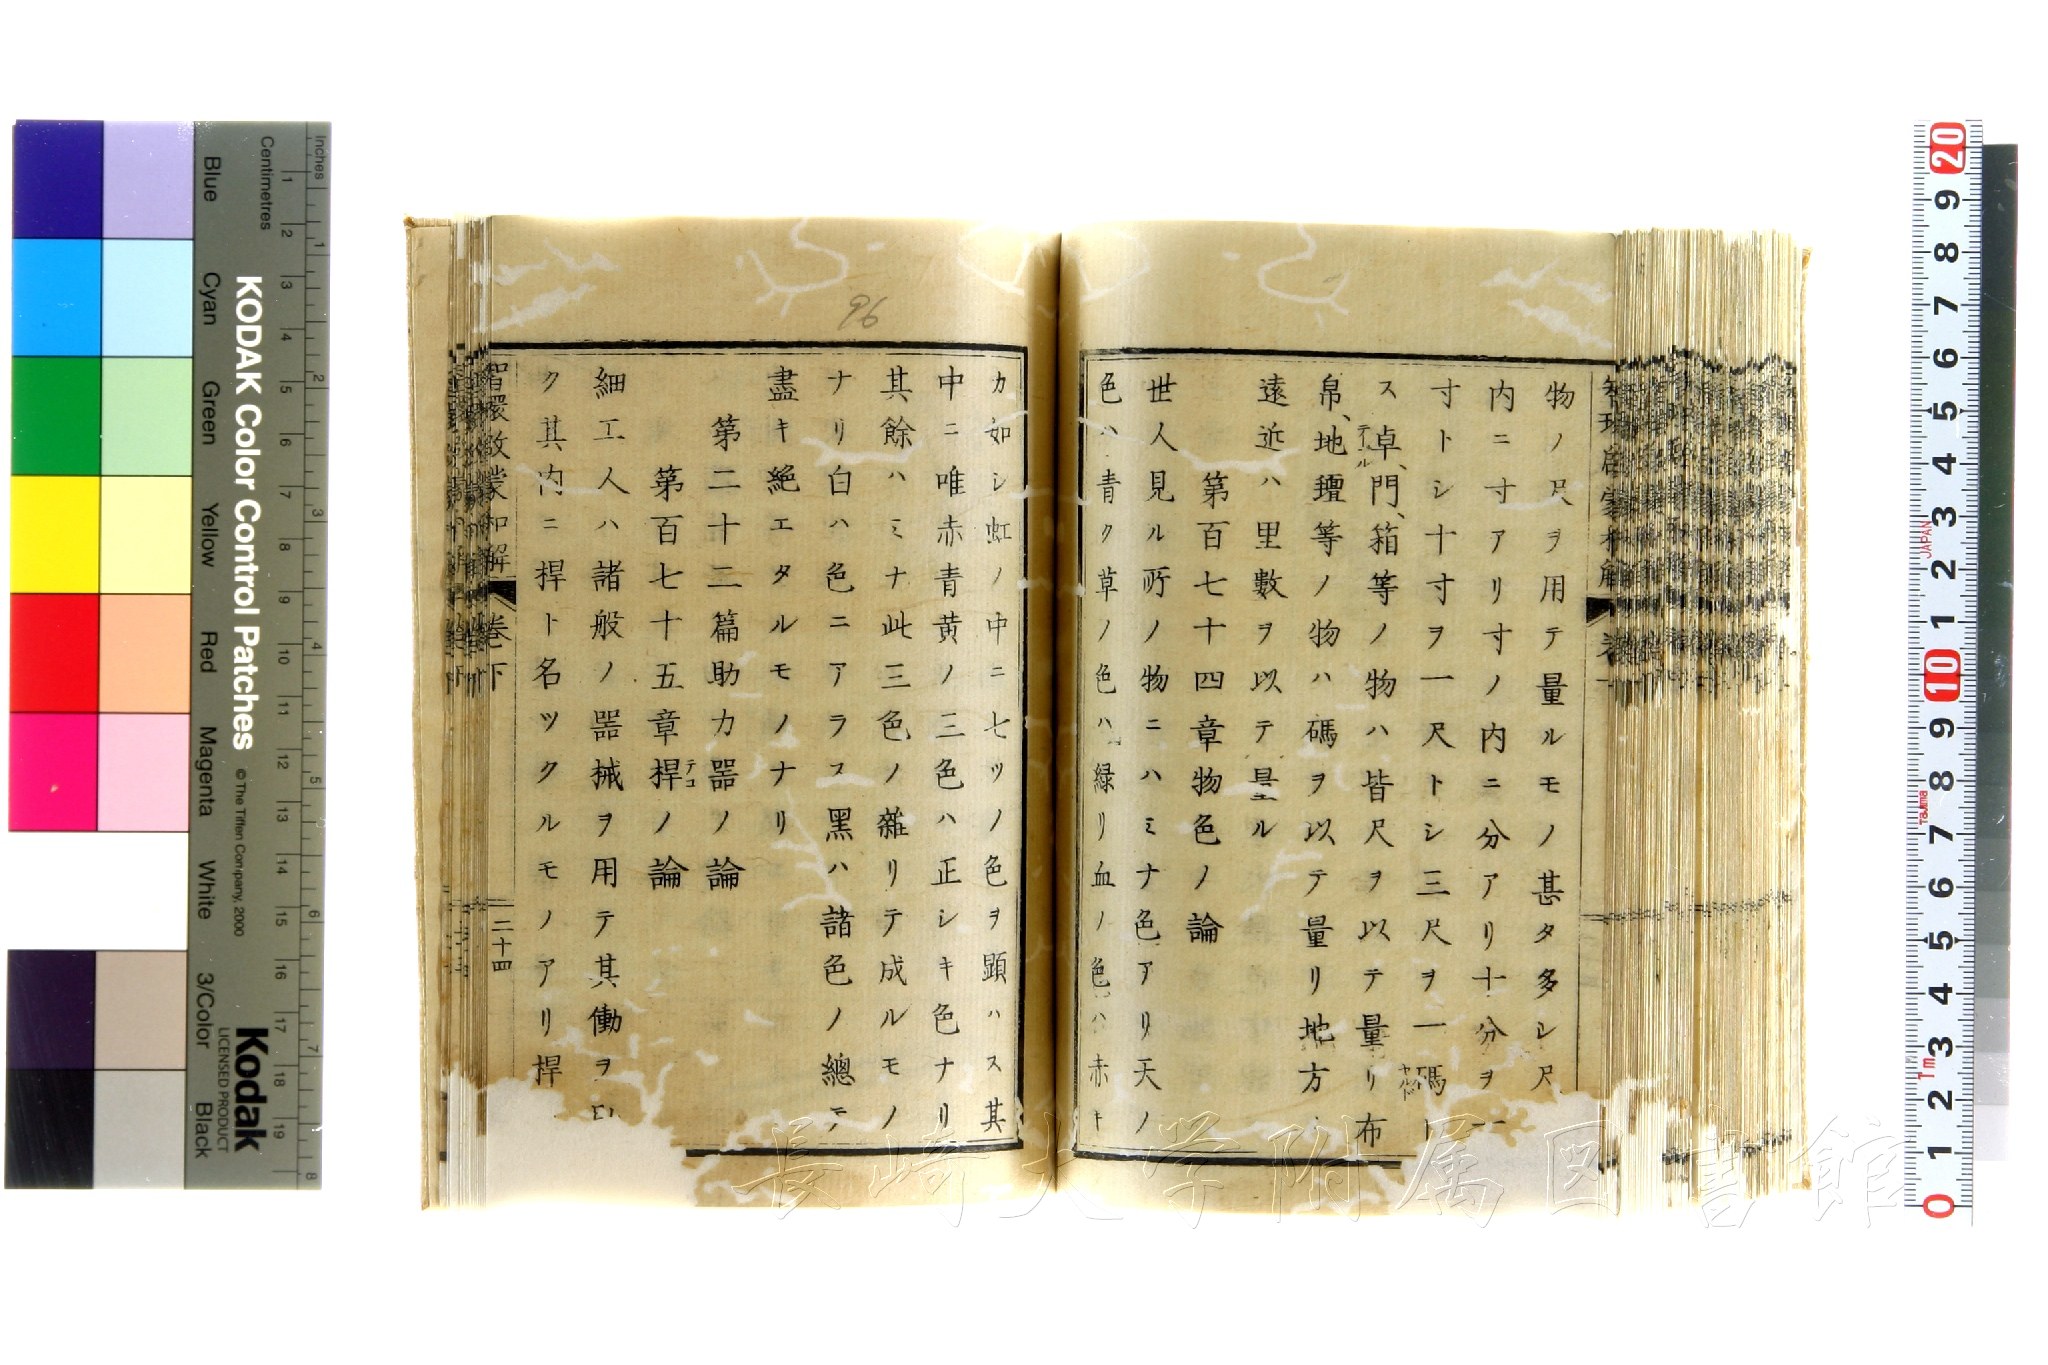 物ノ尺ヲ用テ量ルモノ甚タ多シ尺
内ニ寸アリ寸ノ内ニ分アリ十分ヲ一
寸トシ十寸ヲ一尺トシ三尺ヲ一碼ト
ス卓、門、箱等ノ物ハ皆尺ヲ以テ量リ布
帛、地璮等ノ物ハ碼ヲ以テ量リ地方
遠近ハ里數ヲ以テ量ル
第百七十四章物色ノ論
世人見ル所ノ物ニハミナ色アリ天ノ
色ハ青ク草ノ色ハ緑リ血ノ色ハ赤キ
カ如シ虹ノ中ニ七ツノ色ヲ顕ハス其
中ニ唯赤青黄ノ三色ハ正シキ色ナリ
其餘ハミナ此三色ノ雜リテ成ルモノ
ナリ白ハ色ニアラス黑ハ諸色ノ總テ
盡キ絶エタルモノナリ
第二十二篇助力噐ノ論
第百七十五章桿ノ論
テコ
細工人ハ諸般ノ噐械ヲ用テ其働ヲ
ク其内ニ桿ト名ツクルモノアリ桿
智環啟蒙和解 卷下 二十四
96
長崎大学附属図書館
KODAK Color Control Patches
© The Tiffen Company, 2000
Kodak
LICENSED PRODUCT
Inches
Centimetres
Blue
Cyan
Green
Yellow
Red
Magenta
White
3/Color
Black
1 2 3 4 5 6 7 8 9 10 11 12 13 14 15 16 17 18 19
1 2 3 4 5 6 7 8
20 9 8 7 6 5 4 3 2 1 10 9 8 7 6 5 4 3 2 1 0
JAPAN
Tajima